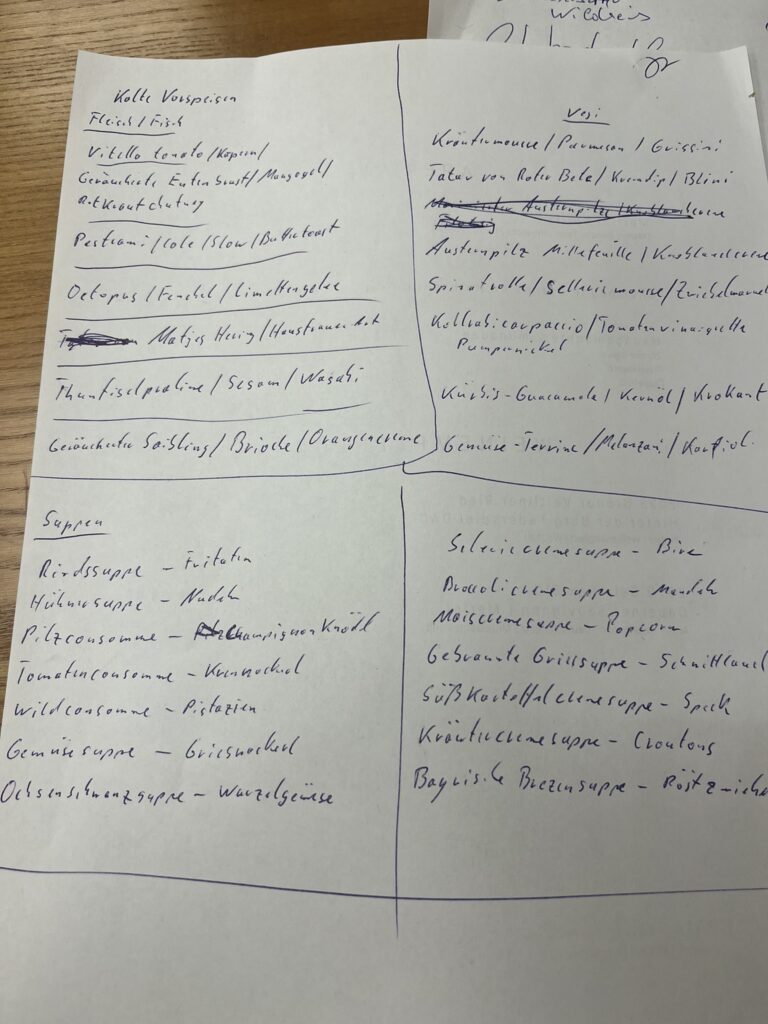 Wildreis
Kalte Vorspeisen
Fleisch/Fisch
Vitello tonato/Kapern/
Geräucherte Entenbrust/Mangogel/
Rotkrautchutney
Pastrami/Cole/Slow/Buttertoast
Octopus/Fenchel/Limettengelee
Matjes Hering/Hausfrauen Art
Thunfischpraline/Sesam/Wasabi
Geräucherter Saibling/Brioche/Orangencreme
Vegi
Kräutermousse/Parmesan/Grissini
Tatar von Roter Bete/Krendip/Blini
Austernpilz Millefeuille/Knoblauchcreme
Spinatrolle/Selleriemousse/
Kohlrabicarpaccio/Tomatenvinaigrette
Pumpernickel
Kürbis-Guacamole/Kernöl/Krokant
Gemüse-Terrine/Melanzani/Karfiol
Suppen
Rindssuppe - Fritaten
Hühnersuppe - Nudeln
Pilzconsomme - Champignon Knödl
Tomatenconsomme - Krennockerl
Wildconsomme - Pistazien
Gemüsesuppe - Griesnockerl
Ochsenschwanzsuppe - Wurzelgemüse
Seleriecremesuppe - Birne
Broccolicremesuppe - Mandeln
Maiscremesuppe - Popcorn
Gebrannte Griessuppe - Schnittlauch
Süßkartoffelcremesuppe - Speck
Kräutercremesuppe - Croutons
Bayrische Brezensuppe - Röstzwiebel